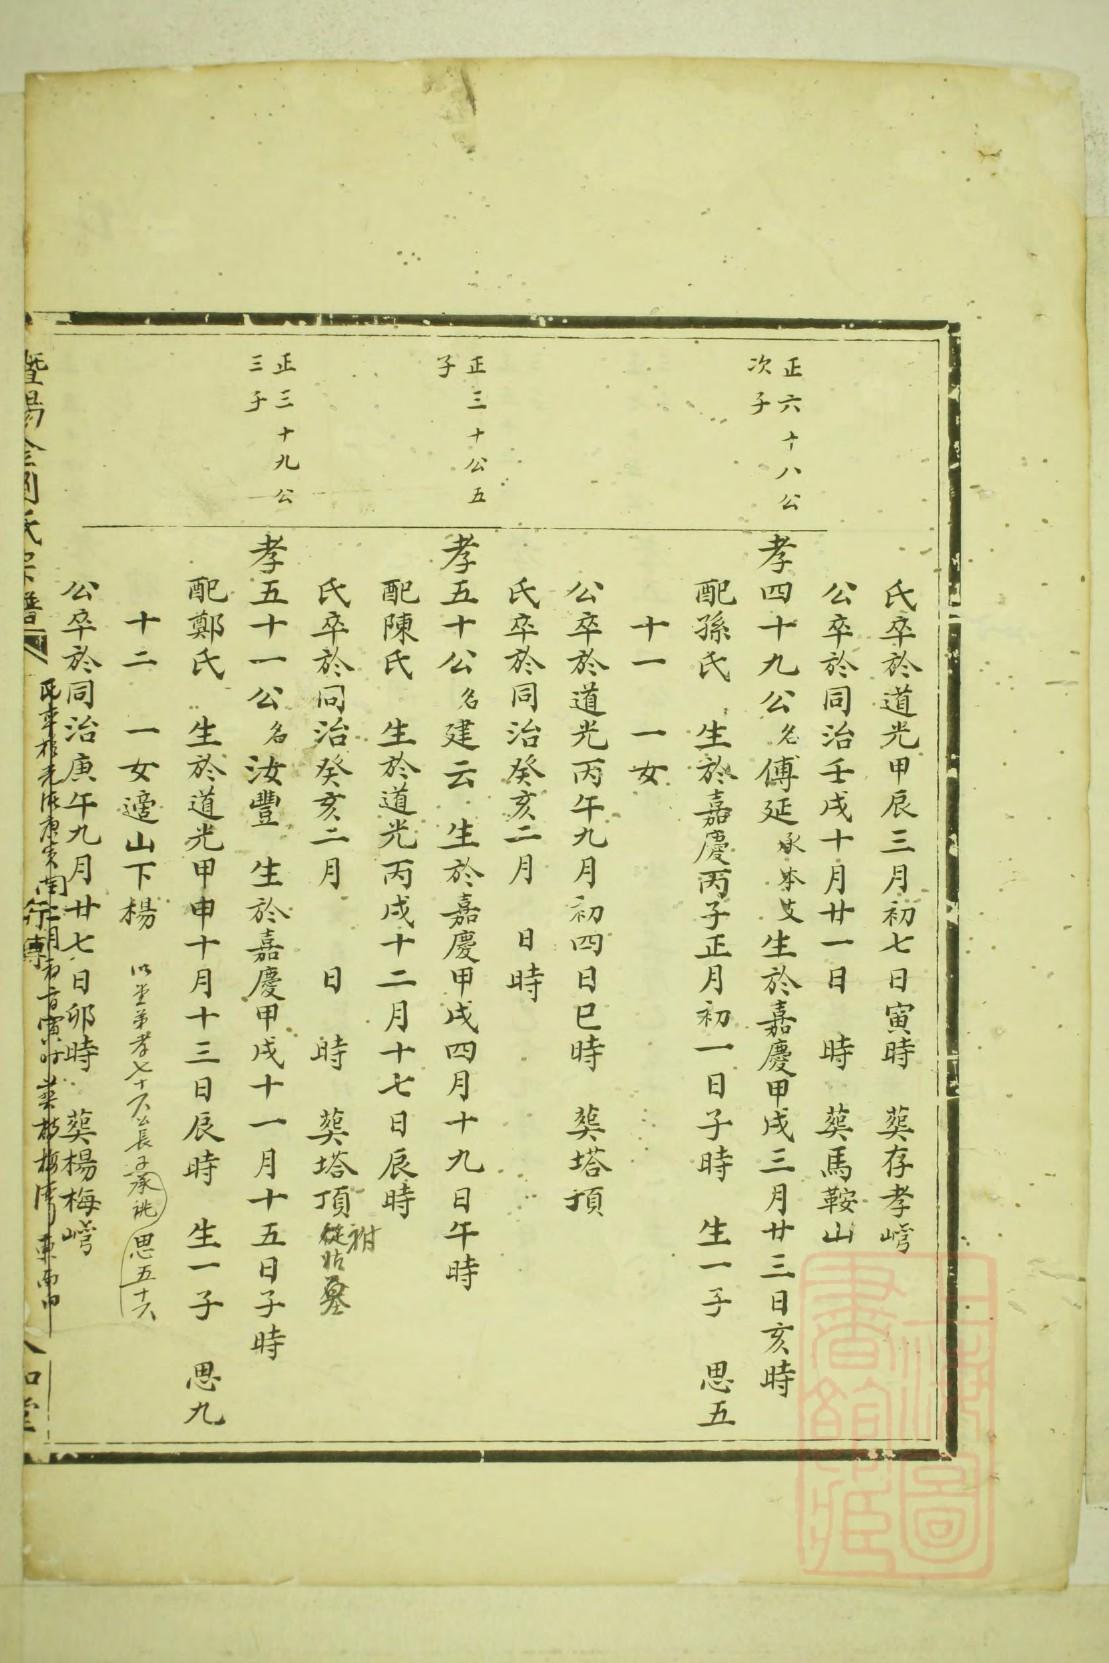 氏卒於道光甲辰三月初七日寅時 葬存孝崂
公卒於同治壬戌十月廿一日 時 葬馬鞍山
正六十八公
次子
孝四十九公名傅延承本支生於嘉慶甲戌三月廿三日亥時
配孫氏 生於嘉慶丙子正月初一日子時 生一子 思五
十一 一女
公卒於道光丙午九月初四日巳時 葬塔頂
氏卒於同治癸亥二月 日時
正三十公五
子
孝五十公名建云 生於嘉慶甲戌四月十九日午時
配陳氏 生於道光丙戌十二月十七日辰時
氏卒於同治癸亥二月 日 時 葬塔頂祔從姑墓
正三十九公
三子
孝五十一公名汝豐 生於嘉慶甲戌十一月十五日子時
配鄭氏 生於道光甲申十月十三日辰時 生一子 思九
十二 一女適山下楊 以堂弟孝七十六公長子承祧思五十六
公卒於同治庚午九月廿七日卯時 葬楊梅崂
行傳